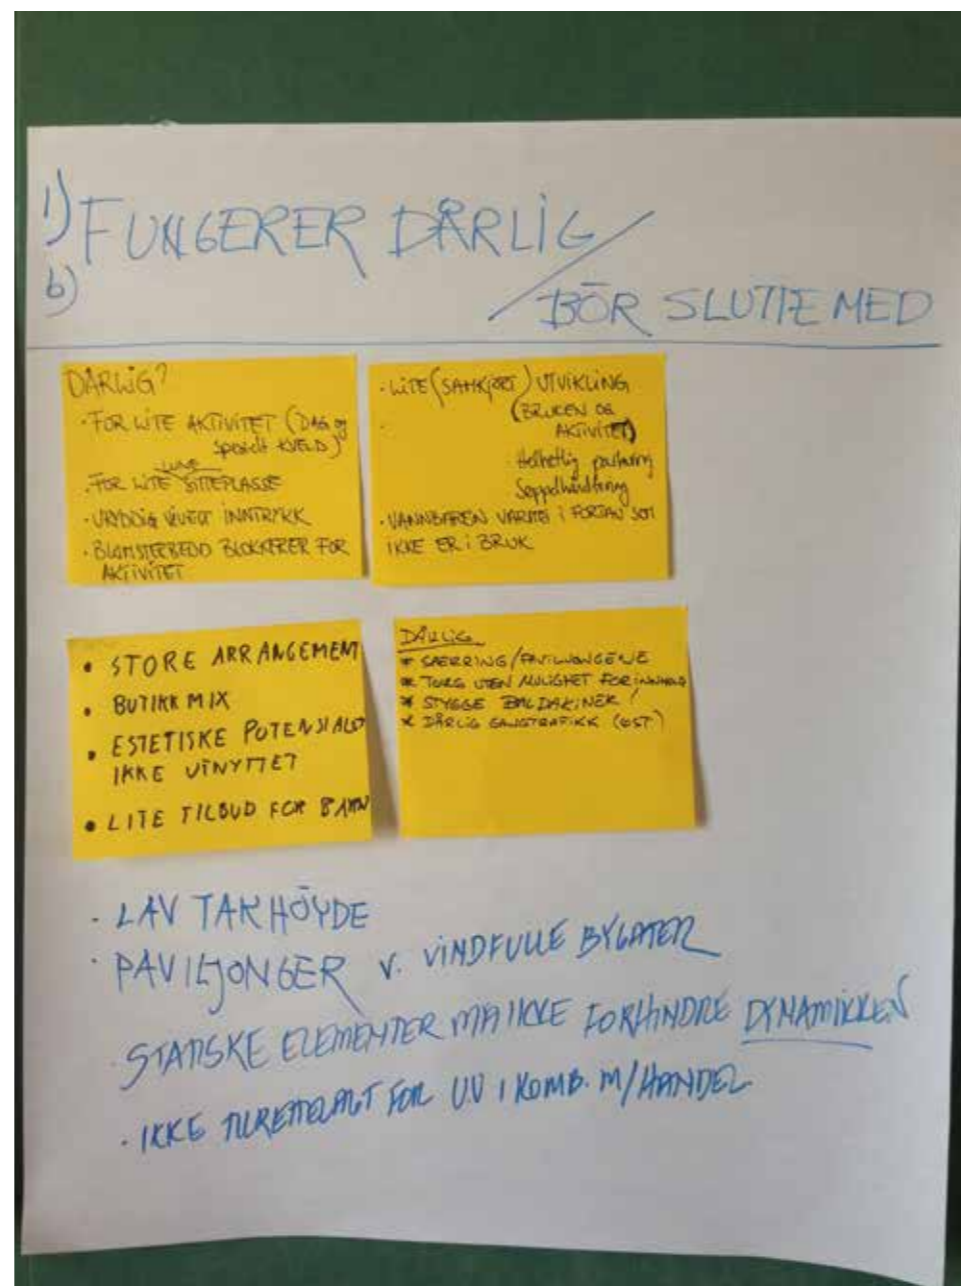 1) FUNGERER DÅRLIG /
b) BÖR SLUTTE MED
DÅRLIG?
· FOR LITE AKTIVITET (DAG og
spesielt KVELD)
LUNE
· FOR LITE SITTEPLASSE
· URYDDIG VISUELT INNTRYKK
· BLOMSTERBEDD BLOKKERER FOR
AKTIVITET
· LITE (SAMKJØRT) UTVIKLING
(BRUKEN OG
AKTIVITET)
· Helhetlig
Søppelhåndtering
· VANNBÅREN VARME I FORTAU SOM
IKKE ER I BRUK
• STORE ARRANGEMENT
• BUTIKK MIX
• ESTETISKE POTENSIALE
IKKE UTNYTTET
• LITE TILBUD FOR BARN
DÅRLIG
* /PAVILJONGENE
* TORG UTEN MULIGHET FOR INNHOLD
* STYGGE BALDAKINER!
* DÅRLIG GANGTRAFIKK (ØST)
· LAV TAKHÖYDE
· PAVILJONGER V. VINDFULLE BYGATER
· STATISKE ELEMENTER MÅ IKKE FORHINDRE DYNAMIKKEN
· IKKE TILRETTELAGT FOR UU I KOMB. M/HANDEL